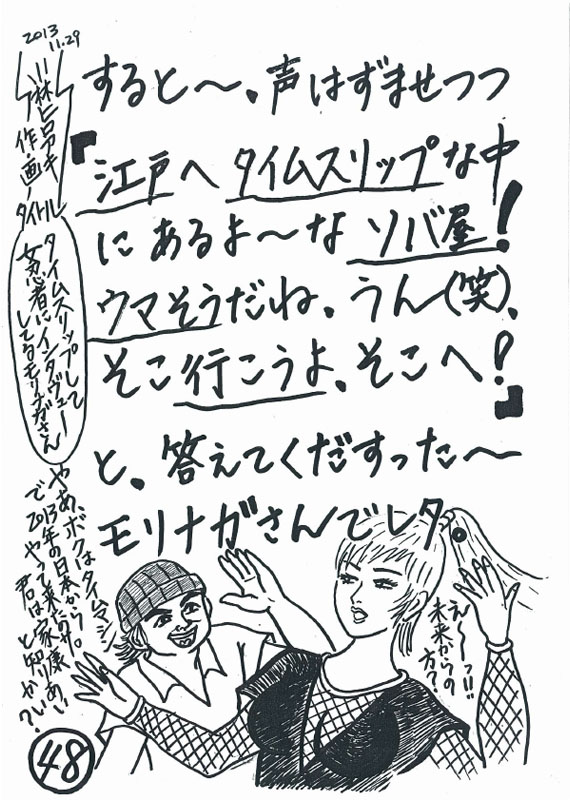 2013
11.29
作画/
タイトル
タイムスリップして
女忍者にインタヴュー
してるモリナガさん
すると〜。声はずませつつ
『江戸へタイムスリップな中
にあるよ〜なソバ屋!
ウマそうだね。うん(笑)。
そこ行こうよ。そこへ!』
と。答えてくだすった〜
モリナガさんでレタ。
やあ、ボクはタイムマシン
で2013年の日本から
やって来たのサ。
君は家康あい
と知り合い?
え〜っ!!
未来からの
方?
48